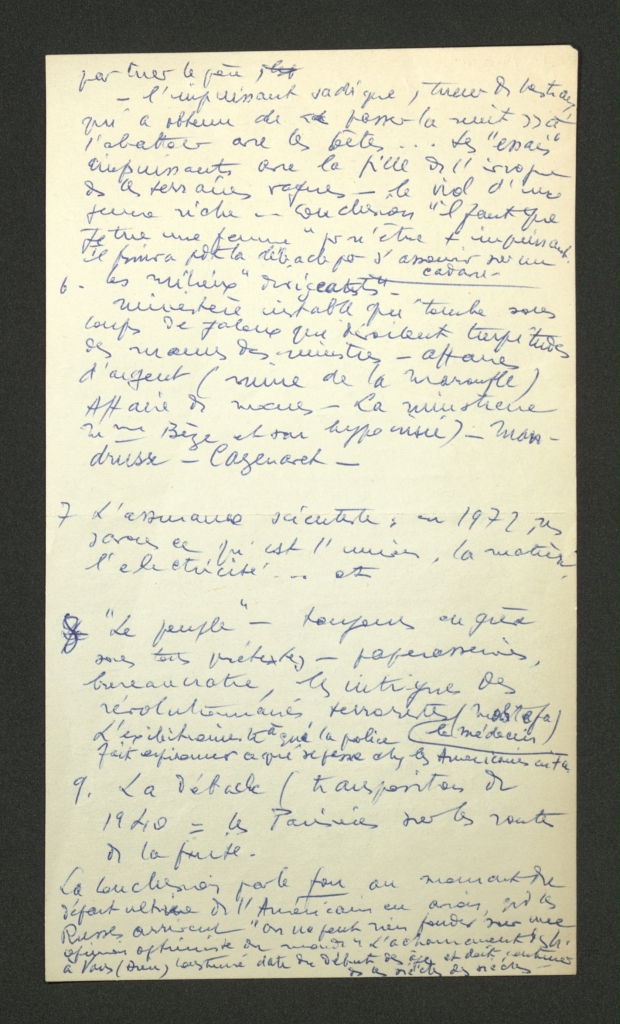 par tuer le père,
– l'impuissant sadique, tueur de bestiaux
qui a obtenu de passer la nuit à
l'abattoir avec les bêtes... Les "essais"
impuissants avec la fille de l'ivrogne
de les terrains vagues – le viol d'une
femme riche – Conclusion "il faut que
je tue une femme" pr n'être + impuissant.
il finira pdt la débacle par s'assouvir sur un
cadavre –
6. – Les milieux "dirigeants" –
ministère instable qui tombe sous
coups de jaloux qui dévoilent turpitudes
des mœurs des ministres – affaires
d'argent (mine de la Maroufle)
Affaire de mœurs – La ministresse
Mme Bèze et son hypocrisie) –
drusse – Cazenaret –
7 L'assurance scientiste : en 1972, ns
savons ce qu'est l'univers, la matière,
l'électricité... etc
8 "Le peuple" – toujours en grève
sous tous prétextes – paperasseries,
bureaucratie, les intrigues des
révolutionnaires terroristes (Mostafa)
(le médecin)
L'exibitionniste à qui la police
fait espionner ce qui se passe chez les Américains
9. La Débacle (transposition de
1940 = les Parisiens sur les routes
de la fuite.
La conclusion par le fou au moment du
départ ultime de l'Américain en avion, qd les
Russes arrivent "on ne peut rien fonder sur une
optimiste du monde. L'acharnement
à (Dieu) costumé date du début des âges et doit continuer
ds les siècles des siècles –